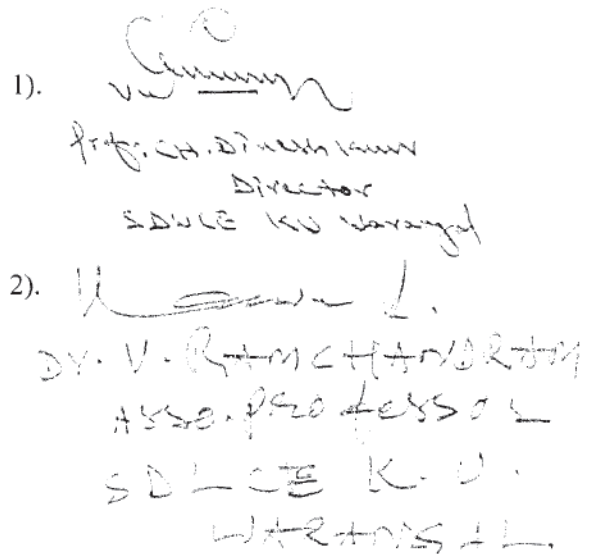 1).
Prof. CH. Dinesh Kumar
Director
SDLCE KU Warangal
2).
Dr. V. RAMCHANDRAM
ASSO. PROfeSSOR
SDLCE K.U.
WARANGAL.